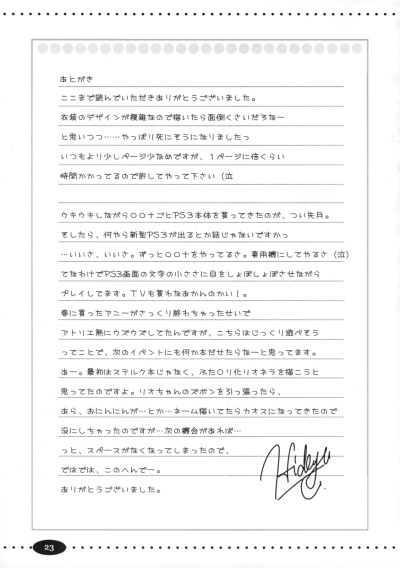 あとがき
ここまで読んでいただきありがとうございました。
衣装のデザインが複雑なので描いたら面倒くさいだろなー
と思いつつ……やっぱり死にそうになりましたっ
いつもより少しページ少なめですが、1ページに倍くらい
時間かかってるので許してやって下さい（泣
ウキウキしながら〇〇十ごとPS3本体を買ってきたのが、つい先月。
そしたら、何やら新型PS3が出るとか話じゃないですかっ
…いいさ、いいさ。ずっと〇〇十をやってるさ。専用機にしてやるさ（泣）
てなわけでPS3画面の文字の小ささに目をしょぼしょぼさせながら
プレイしてます。TVも買わなあかんのかい！。
春に買ったマニーがさっくり終わっちゃったせいで
アトリエ熱にウズウズしてたんですが、こちらはじっくり遊べそう
ってことで、次のイベントにも何か本だせたらなーと思ってます。
あー。最初はステルク本じゃなく、ふたのり化リオネラを描こうと
思ってたのですよ。リオちゃんのズボンを引っ張ったら、
あら、おにんにんが…とか…ネーム描いてたらカオスになってきたので
没にしちゃったのですが…次の機会があれば…
っと、スペースがなくなってしまったので、
ではでは、このへんでー。
ありがとうございました。
23